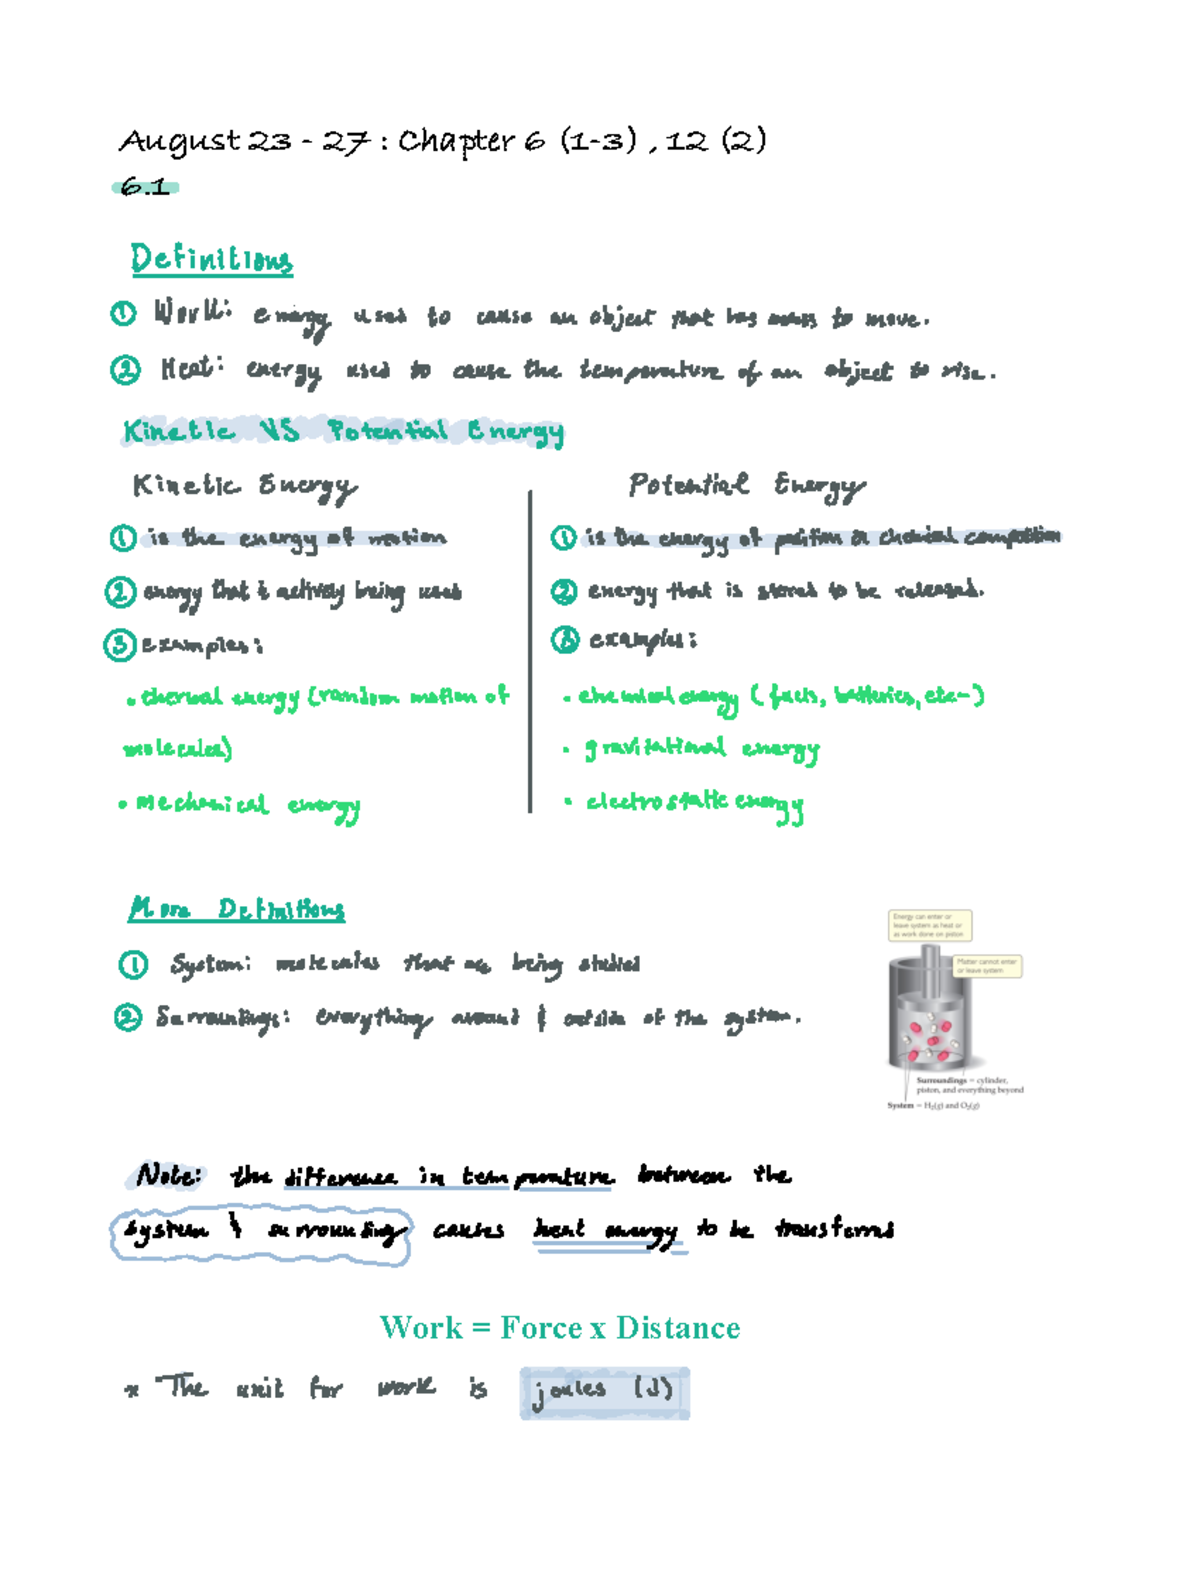 August 23 - 27 : Chapter 6 (1-3) , 12 (2)
6.1
Definitions
① Work: energy used to cause an object that has mass to move.
② Heat: energy used to cause the temperature of an object to rise.
Kinetic VS Potential Energy
Kinetic Energy
① is the energy of motion
② energy that is actively being used
③ examples:
• thermal energy (random motion of
molecules)
• mechanical energy
Potential Energy
① is the energy of position or chemical composition
② energy that is stored to be released.
③ examples:
• chemical energy ( fuels, batteries, etc-)
• gravitational energy
• electrostatic energy
More Definitions
① System: molecules that are being studied
② Surroundings: everything around & outside of the system.
Energy can enter or
leave system as heat or
as work done on piston
Matter cannot enter
or leave system
Surroundings = cylinder,
piston, and everything beyond
System = H₂(g) and O₂(g)
Note: the difference in temperature between the
system & surrounding causes heat energy to be
Work = Force x Distance
* The unit for work is joules (J)